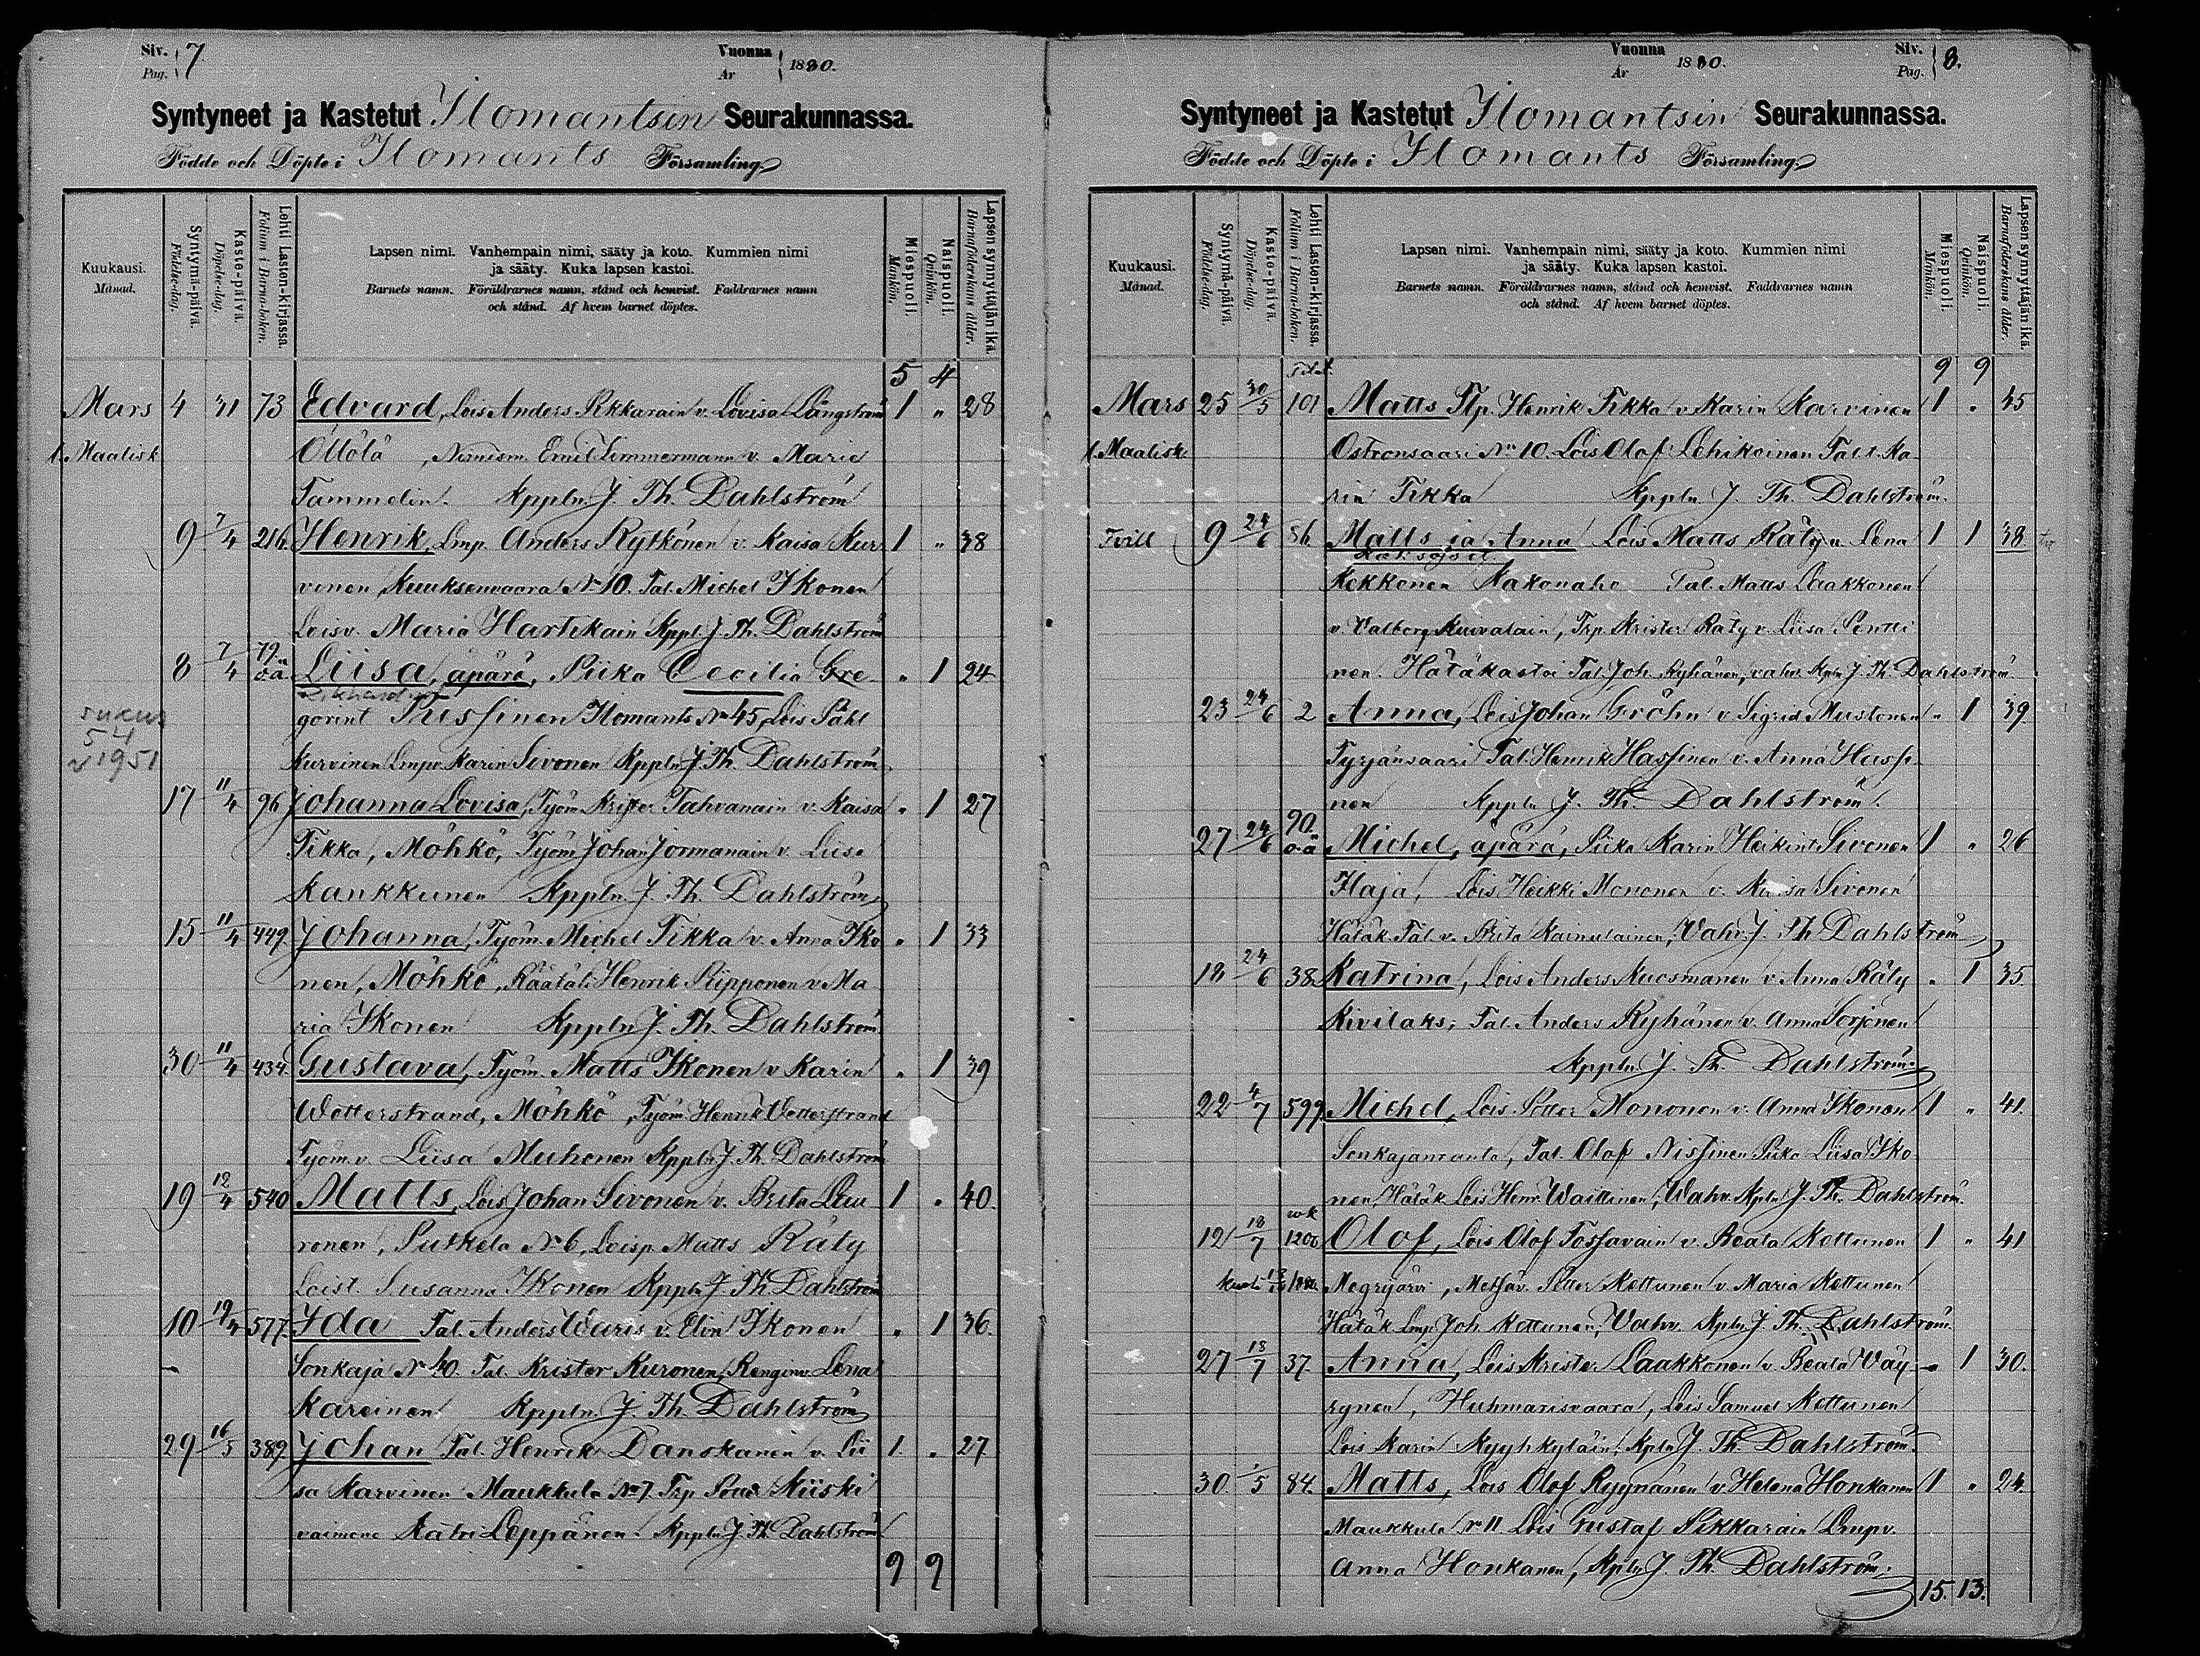 Siv. Pag. 7. Vuonna År 1880.
Syntyneet ja Kastetut Ilomantsin Seurakunnassa.
Födde och Döpte i Ilomants Församling.
Kuukausi. Månad.
Syntymä-päivä. Födelse-dag.
Kaste-päivä. Döpelse-dag.
Lehti Lasten-kirjassa. Folium i Barna-boken.
Lapsen nimi. Vanhempain nimi, sääty ja koto. Kummien nimi
ja sääty. Kuka lapsen kastoi.
Barnets namn. Föräldrarnes namn, stånd och hemvist. Faddrarnes namn
och stånd. Af hvem barnet döptes.
Miespuoli. Mankön.
Naispuoli. Qvinkön.
Lapsen synnyttäjän ikä. Barnaföderskans ålder.
5 4
Mars 4 31 73 Edvard, Lois Anders Sikkarain v. Lovisa Långström 1 " 28
l. Maalisk Öllölä, Nimism. Emil Zimmermann v. Marie
Tammelin. Kappln. J. Th. Dahlström
9 7/4 216. Henrik, Lmp. Anders Rytkönen v. Kaisa Kur- 1 " 38
vinen, Kuuksenvaara No 10. Tal. Michel Ikonen
Loisv. Maria Hartikain Kppl. J. Th. Dahlström
8 7/4 79. o.ä. Liisa, äpärä, Piika Cecilia Gre- " 1 24
gorint Pussinen Ilomants No 45, Lois Påhl
sukus
5/4
v 1951
Kurvinen Lmpv. Karin Sivonen Kppln J. Th. Dahlström
17 11/4 96 Johanna Lovisa, Työm. Krister Tahvanain v. Kaisa " 1 27
Tikka, Möhkö, Työm. Johan Jormanain v. Liisa
Kaukkunen Kppln. J. Th. Dahlström
15 11/4 449. Johanna, Työm. Michel Tikka v. Anna Iko- " 1 33
nen, Möhkö, Räätäli Henrik Piipponen v. Ma-
ria Ikonen Kppln J. Th. Dahlström
30 11/4 434. Gustava, Työm. Matts Ikonen v. Karin " 1 39
Wetterstrand, Möhkö, Työm. Henrik Wetterstrand
Työm. v. Liisa Muhonen Kppln J. Th. Dahlström
19 12/4 540 Matts, Lois Johan Sivonen v. Brita Leu- 1 " 40.
ronen, Putkela No 6, Loisp. Matts Räty
Loist. Susanna Ikonen Kppln J. Th. Dahlström
10 19/4 577. Ida Tal. Anders Waris v. Elin Ikonen " 1 36.
Sonkaja No 40. Tal. Krister Kuronen, Renginv. Lena
Kareinen Kppln. J. Th. Dahlström
29 16/5 389 Johan Tal. Henrik Danskanen v. Lii- 1. " 27
sa Karvinen Maukkula No 7. Trp. Kiiski
vaimone Katri Leppänen. Kppln J. Th. Dahlström
9 9
Vuonna År 1880. Siv. Pag. 8.
Syntyneet ja Kastetut Ilomantsin Seurakunnassa.
Födde och Döpte i Ilomants Församling.
Kuukausi. Månad.
Syntymä-päivä. Födelse-dag.
Kaste-päivä. Döpelse-dag.
Lehti Lasten-kirjassa. Folium i Barna-boken.
Lapsen nimi. Vanhempain nimi, sääty ja koto. Kummien nimi
ja sääty. Kuka lapsen kastoi.
Barnets namn. Föräldrarnes namn, stånd och hemvist. Faddrarnes namn
och stånd. Af hvem barnet döptes.
Miespuoli. Mankön.
Naispuoli. Qvinkön.
Lapsen synnyttäjän ikä. Barnaföderskans ålder.
9 9
Mars 25 30/5 101 Matts Tlp. Henrik Tikka v. Karin Karvinen 1 " 45
l. Maalisk Ostronsaari No 10. Lois Olof Lehikoinen Tal.t. Ka-
rin Tikka Kppln J. Th. Dahlström.
Tvill 9 24/6 86 Matts ja Anna Lois Matts Räty v. Lena 1 1 38
Kaksoiset
Kekkonen Kakonaho Tal. Matts Laakkonen
v. Valborg Kuivalain, Trp. Krister Räty v. Liisa Pentti-
nen. Hätäkastoi Tal. Joh. Ryhänen, vahv. Kpln J. Th. Dahlström
23 24/6 2 Anna, Lois Johan Gröhn v. Sigrid Mustonen " 1 39
Tyrjänsaari Tal. Henrik Hassinen v. Anna Hassi-
nen Kppln J. Th. Dahlström.
27 24/6 90. o.ä. Michel, äpärä, Piika Karin Heikint. Sivonen 1 " 26
Ilaja, Lois Heikki Mononen v. Kaisa Sivonen
Hätäk. Tal. v. Brita Kainulainen, Vahv. J. Th. Dahlström
18 24/6 38. Katrina, Lois Anders Kuosmanen v. Anna Räty " 1 35.
Kivilaks, Tal. Anders Ryhänen v. Anna Sorjonen
Kppln J. Th. Dahlström
22 4/7 599 Michel, Lois Petter Mononen v. Anna Ikonen 1 " 41.
Sonkajanranta, Tal. Olof Nissinen Piika Liisa Iko-
nen, Hätäk Lois Henr. Waittinen, Wahv. Kpln J. Th. Dahlström.
12 18/7 1200 Olof, Lois Olof Tossavain v. Beata Kettunen 1 " 41
Megrijärvi, Metsäv. Petter Kettunen v. Maria Kettunen
Hätäk Lmp. Joh. Kettunen, Vahv. Kpln. J. Th. Dahlström.
27 18/7 37. Anna, Lois Krister Laakkonen v. Beata Väy- " 1 30.
rynen, Huhmarisvaara, Lois Samuel Kettunen
Lois Karin Kyyhkyläin, Kpln J. Th. Dahlström
30 /5 84. Matts, Lois Olof Ryynänen v. Helena Honkanen 1 " 24.
Maukkula No 11 Lois Gustaf Sikkarain Lmpv.
Anna Honkanen, Kpln J. Th. Dahlström.
15. 13.